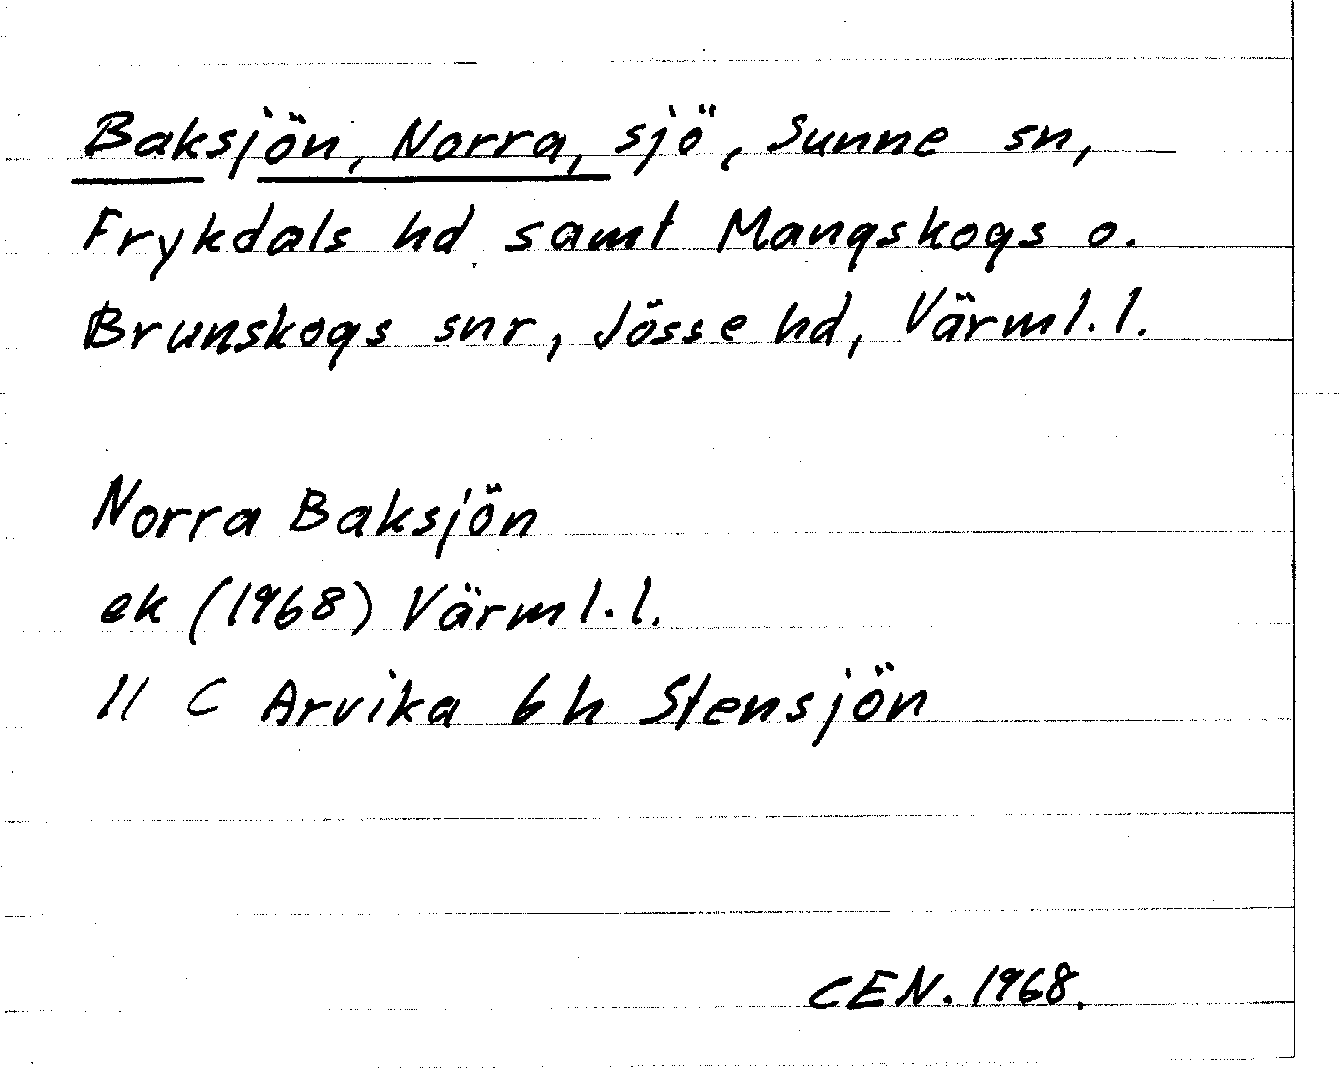 Baksjön, Norra, sjö, Sunne sn,
Frykdals hd samt Mangskogs o.
Brunskogs snr, Jösse hd, Värml. l.
Norra Baksjön
ek (1968) Värml. l.
11 C Arvika 6h Stensjön
CEN. 1968.